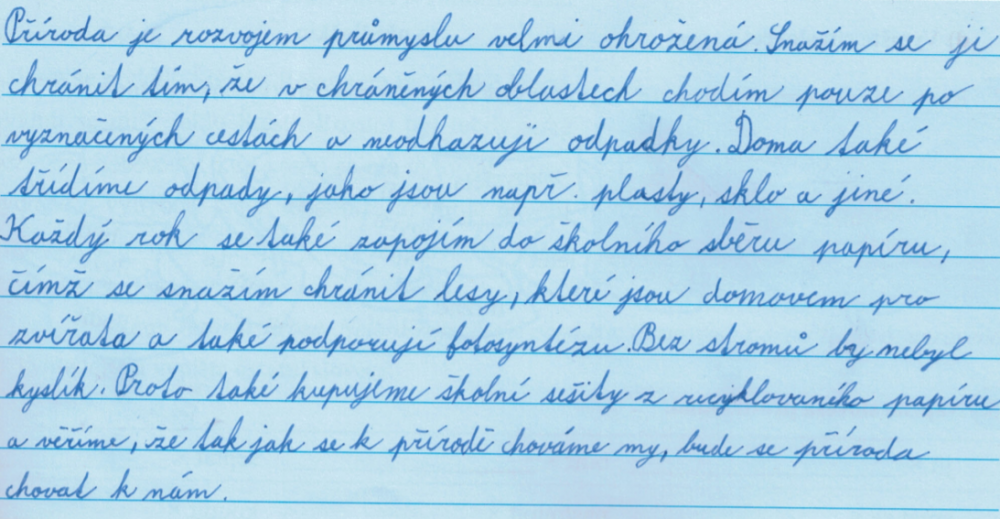 Příroda je rozvojem průmyslu velmi ohrožená. Snažím se ji
chránit tím, že v chráněných oblastech chodím pouze po
vyznačených cestách a neodhazuji odpadky. Doma také
třídíme odpady, jako jsou např. plasty, sklo a jiné.
Každý rok se také zapojím do školního sběru papíru,
čímž se snažím chránit lesy, které jsou domovem pro
zvířata a také podporují fotosyntézu. Bez stromů by nebyl
kyslík. Proto také kupujeme školní sešity z recyklovaného papíru
a věříme, že tak jak se k přírodě chováme my, bude se příroda
chovat k nám.